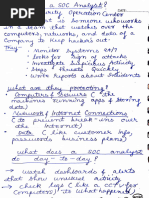 a SOC Analyst?
Security Operation Center
is someone who works
on a team that watches over the
computers, networks, and data of a
company to keep hackers out.
→ Monitor systems 24/7
→ Look for sign of attacks
→ Investigate Suspicious Activity
→ Stop threats quickly
→ Write Reports about Incidents
what are they protecting?
Computers & Servers (the
machines running apps & storing
data)
→ Network & Internet Connections
(to prevent break-ins over
the Internet)
→ Data (like customer info,
passwords business plans)
what does a SOC analyst
do day-to-day?
→ watch dashboards & alerts
that show unusual activity
→ check logs (like a CCTV for
computers) to what happened